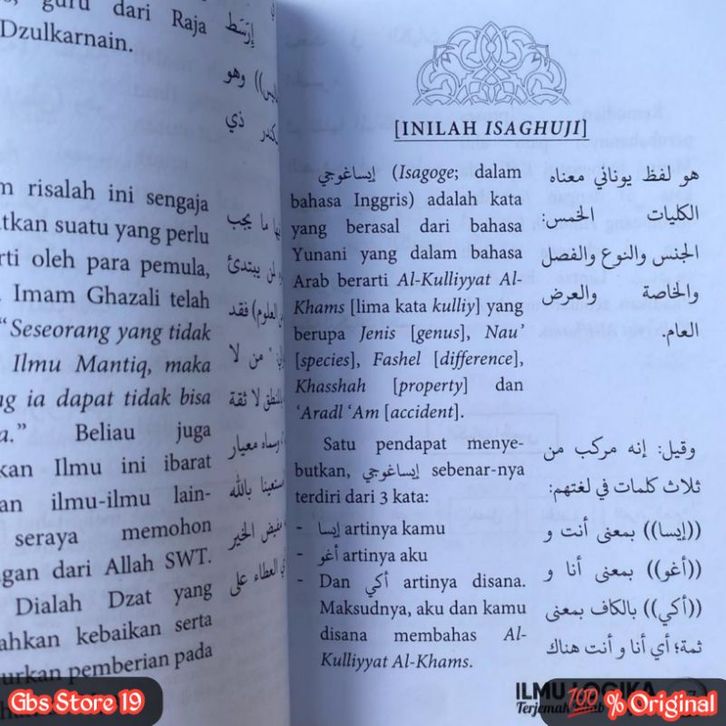 guru dari Raja
Dzulkarnain.
risalah ini sengaja
suatu yang perlu
oleh para pemula,
Imam Ghazali telah
“Seseorang yang tidak
Ilmu Mantiq, maka
ia dapat tidak bisa
Beliau juga
Ilmu ini ibarat
ilmu-ilmu lain-
seraya memohon
dari Allah SWT.
Dialah Dzat yang
kebaikan serta
pemberian pada
وهو
ذي
ما يجب
فقد
من لا
معيار
بالله
الخير
العطاء على
[INILAH ISAGHUJI]
إيساغوجي (Isagoge; dalam
bahasa Inggris) adalah kata
yang berasal dari bahasa
Yunani yang dalam bahasa
Arab berarti Al-Kulliyyat Al-
Khams [lima kata kulliy] yang
berupa Jenis [genus], Nau’
[species], Fashel [difference],
Khasshah [property] dan
‘Aradl ‘Am [accident].
Satu pendapat menye-
butkan, إيساغوجي sebenar-nya
terdiri dari 3 kata:
- إيسا artinya kamu
- أغو artinya aku
- Dan أكي artinya disana.
Maksudnya, aku dan kamu
disana membahas Al-
Kulliyyat Al-Khams.
هو لفظ يوناني معناه
الكليات الخمس:
الجنس والنوع والفصل
والخاصة والعرض
العام.
وقيل: إنه مركب من
ثلاث كلمات في لغتهم:
((إيسا)) بمعنى أنت و
((أغو)) بمعنى أنا و
((أكي)) بالكاف بمعنى
ثمة؛ أي أنا و أنت هناك
ILMU LOGIKA
Terjemah
Gbs Store 19
💯 % Original